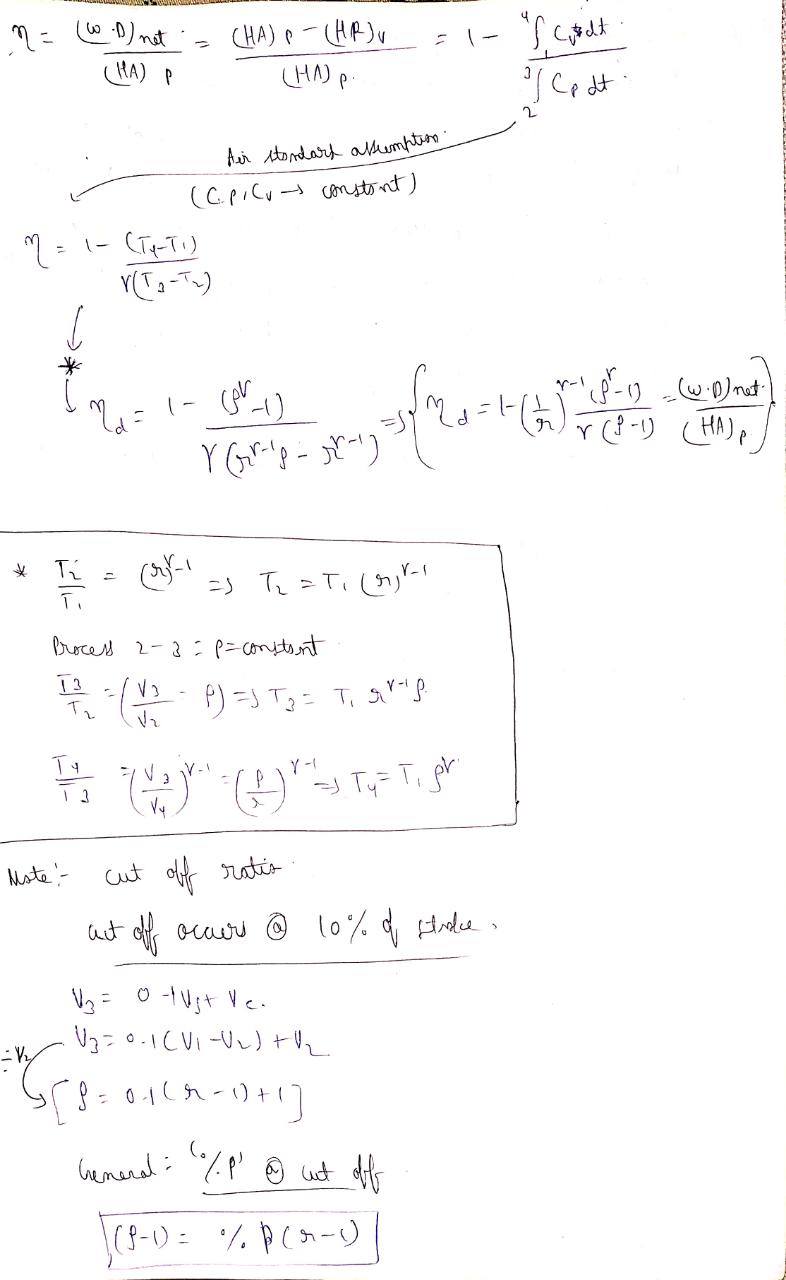 η = (W.D)net / (HA)p = ((HA)p - (HR)v) / (HA)p = 1 - ₁∫⁴ Cv dt / ₂∫³ Cp dt
Air standard assumption
(Cp, Cv → constant)
η = 1 - (T4-T1) / γ(T3-T2)
*
ηd = 1 - (ρ^γ-1) / γ(r^γ-1 ρ - r^γ-1) ⇒ { ηd = 1-(1/r)^γ-1 (ρ^γ-1) / γ(ρ-1) = (W.D)net / (HA)p }
* T2/T1 = (r)^γ-1 ⇒ T2 = T1 (r)^γ-1
Process 2-3 = p=constant
T3/T2 = (V3/V2 = ρ) ⇒ T3 = T1 r^γ-1 ρ
T4/T3 = (V3/V4)^γ-1 = (ρ/r)^γ-1 ⇒ T4 = T1 ρ^γ
Note:- cut off ratio
cut off occurs @ 10% of stroke.
V3 = 0.1Vs + Vc.
V3 = 0.1(V1-V2) + V2
÷V2
[ρ = 0.1(r-1)+1]
General = '%p' @ cut off
(ρ-1) = % p(r-1)